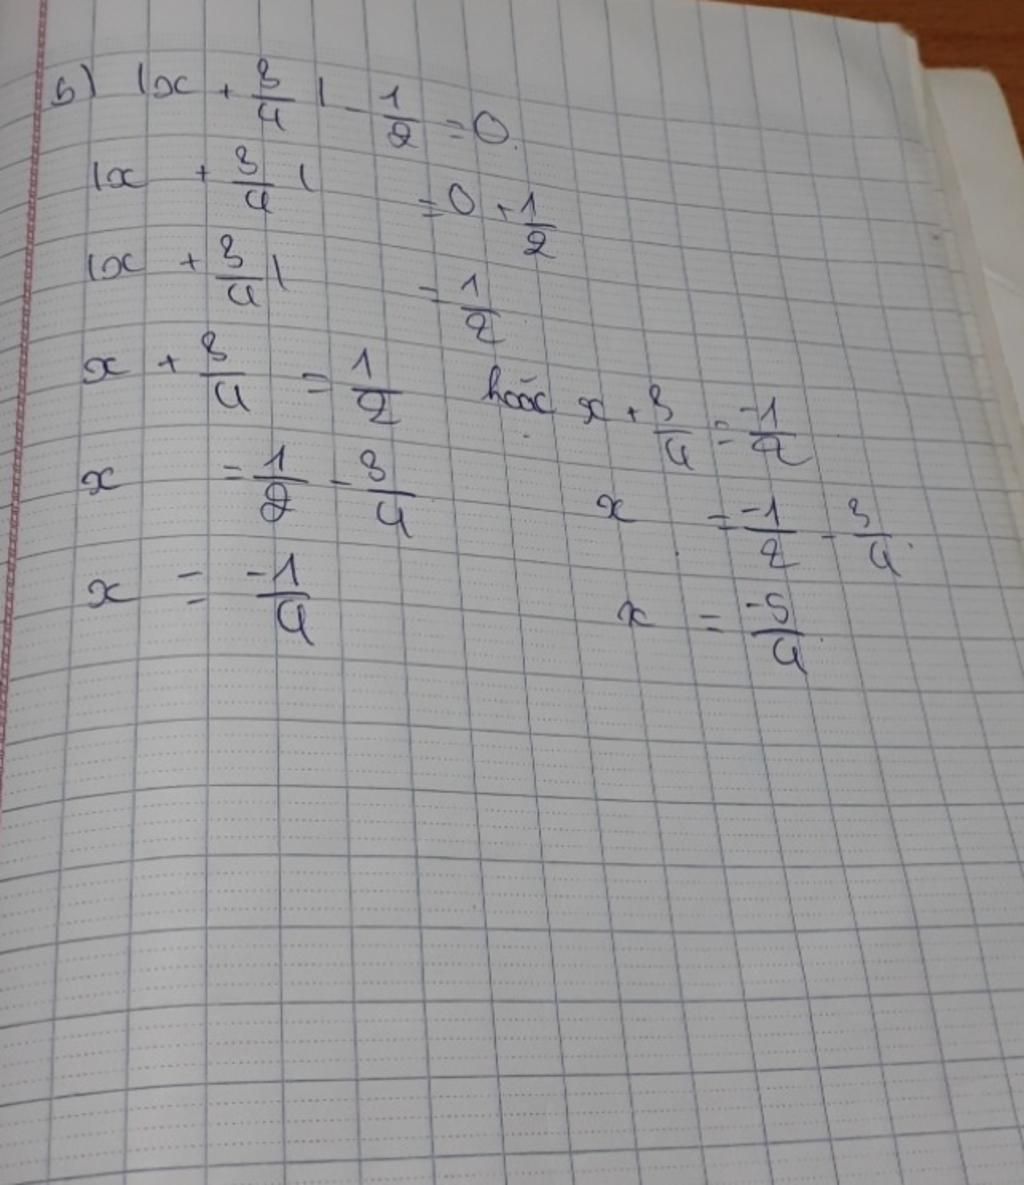 b) |x + 3/4| - 1/2 = 0.
|x + 3/4| = 0 + 1/2
|x + 3/4| = 1/2
x + 3/4 = 1/2 hoặc x + 3/4 = -1/2
x = 1/2 - 3/4 x = -1/2 - 3/4.
x = -1/4 x = -5/4.